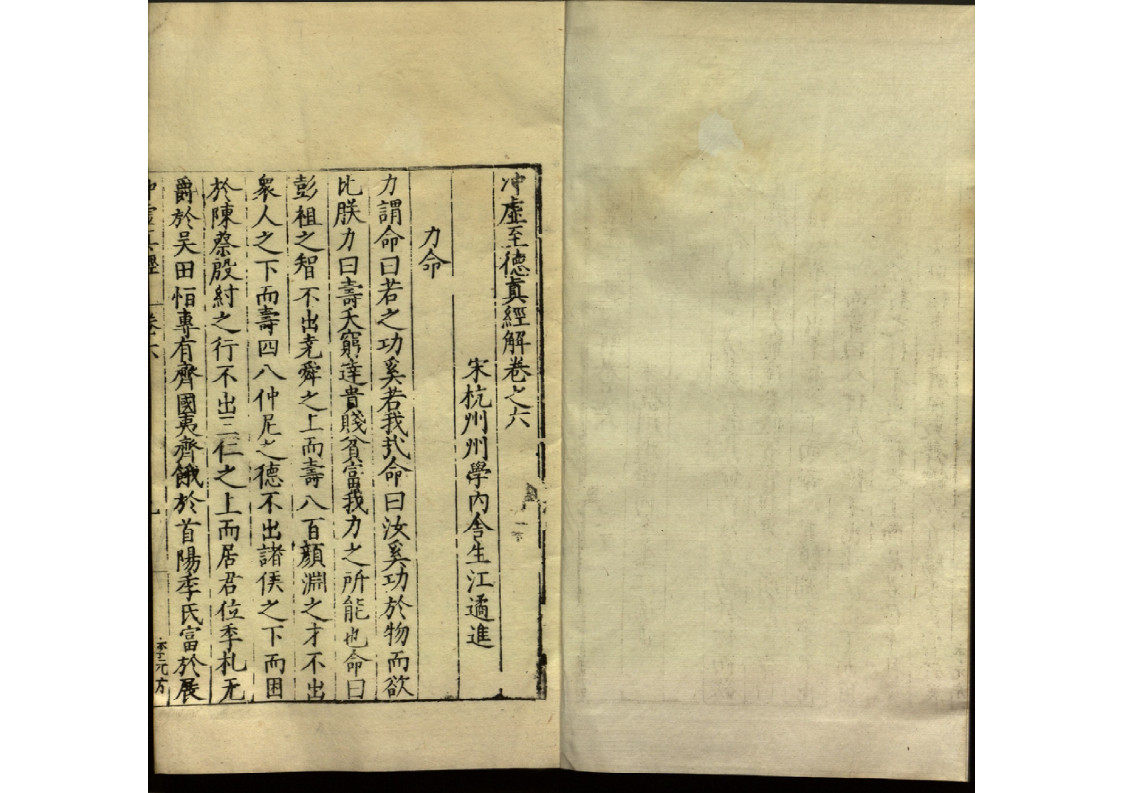 冲虛至德真經解卷之六
宋杭州州學內舍生江遹進
力命
力謂命曰若之功奚若我㢤命曰汝奚功於物而欲
比朕力曰壽夭窮達貴賤貧富我力之所能也命曰
彭祖之智不出堯舜之上而壽八百顔淵之才不出
衆人之下而壽四八仲尼之德不出諸侯之下而困
於陳蔡殷紂之行不出三仁之上而居君位季札无
爵於吳田恒專有齊國夷齊餓於首陽季氏富於展